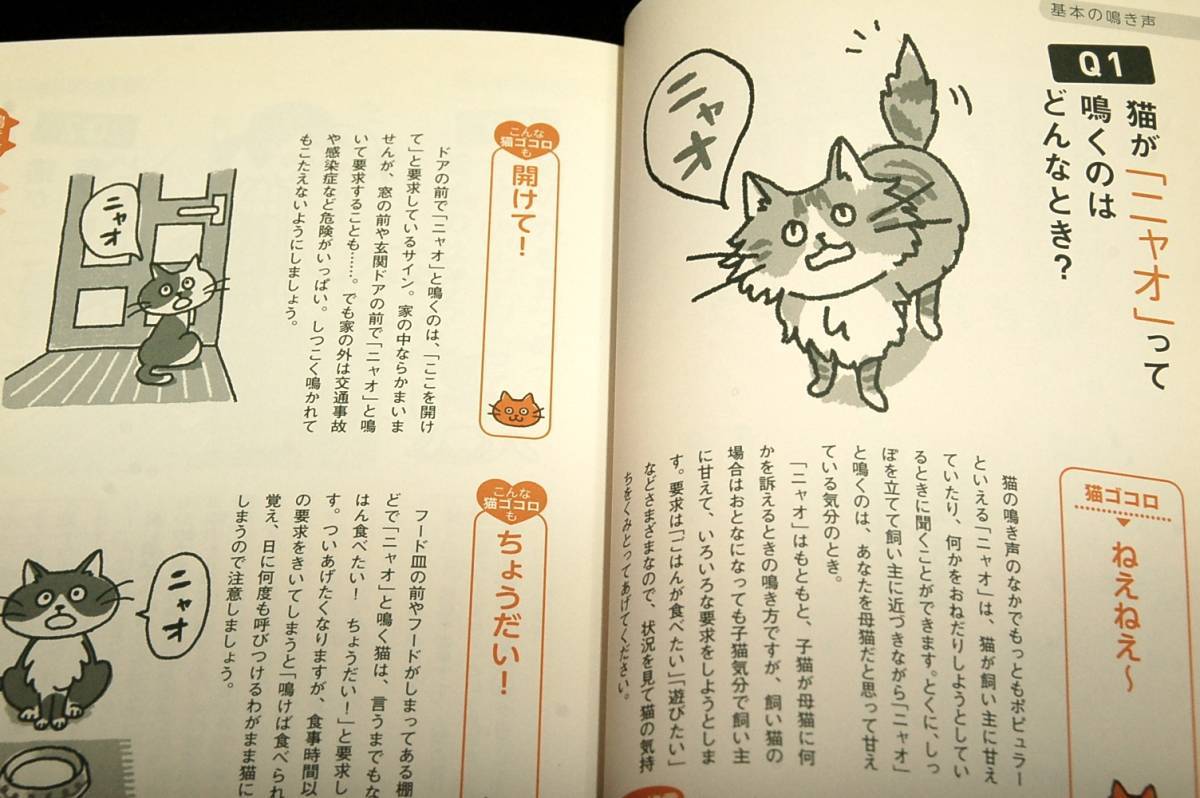 基本の鳴き声
Q1
猫が「ニャオ」って
鳴くのは
どんなとき?
ニャオ
猫ゴコロ
ねえねえ~
猫の鳴き声のなかでもっともポピュラー
といえる「ニャオ」は、猫が飼い主に甘え
ていたり、何かをおねだりしようとしてい
るときに聞くことができます。とくに、しっ
ぽを立てて飼い主に近づきながら「ニャオ」
と鳴くのは、あなたを母猫だと思って甘え
ている気分のとき。
「ニャオ」はもともと、子猫が母猫に何
かを訴えるときの鳴き方ですが、飼い猫の
場合はおとなになっても子猫気分で飼い主
に甘えて、いろいろな要求をしようとしま
す。要求は「ごはんが食べたい」「遊びたい」
などさまざまなので、状況を見て猫の気持
ちをくみとってあげてください。
こんな
猫ゴコロ
も
開けて!
ドアの前で「ニャオ」と鳴くのは、「ここを開け
て」と要求しているサイン。家の中ならかまいま
せんが、窓の前や玄関ドアの前で「ニャオ」と鳴
いて要求することも……。でも家の外は交通事故
や感染症など危険がいっぱい。しつこく鳴かれて
もこたえないようにしましょう。
ニャオ
こんな
猫ゴコロ
も
ちょうだい!
フード皿の前やフードがしまってある棚
どで「ニャオ」と鳴く猫は、言うまでもな
はん食べたい! ちょうだい!」と要求し
す。ついあげたくなりますが、食事時間以
の要求をきいてしまうと「鳴けば食べられ
覚え、日に何度も呼びつけるわがまま猫に
しまうので注意しましょう。
ニャオ